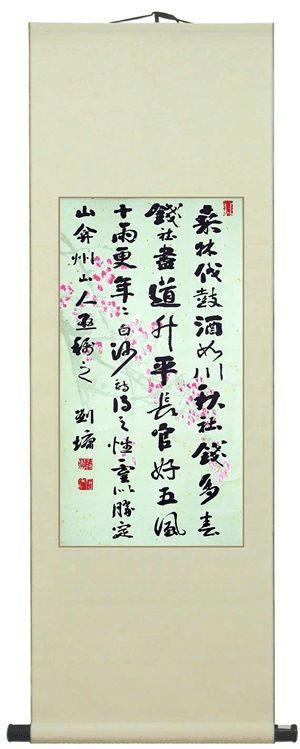 桒林伐鼓酒如川秋社錢多春
錢社盡道升平長官好五風
十雨更年〻白沙詩得之性靈以勝定
山弇州山人亟稱之 劉墉